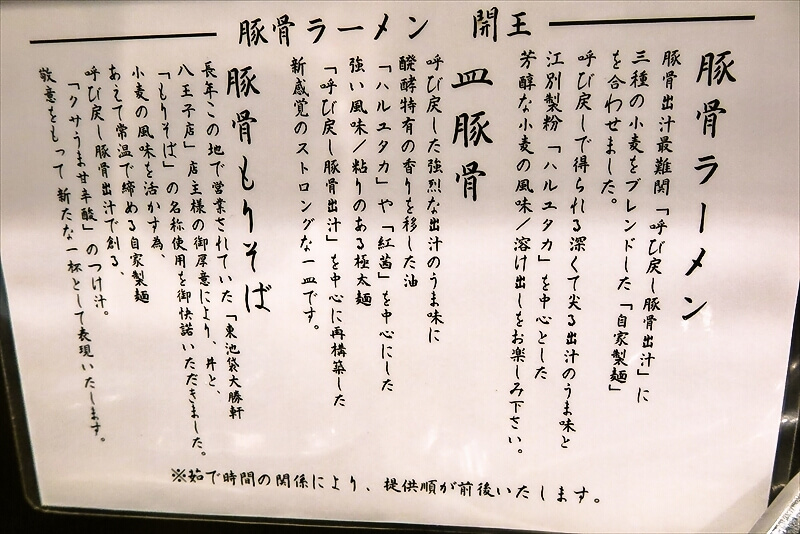 豚骨ラーメン 開王
豚骨ラーメン
豚骨出汁最難関「呼び戻し豚骨出汁」に
三種の小麦をブレンドした「自家製麺」
を合わせました。
呼び戻しで得られる深くて尖る出汁のうま味と
江別製粉「ハルユタカ」を中心とした
芳醇な小麦の風味/溶け出しをお楽しみ下さい。
皿豚骨
呼び戻した強烈な出汁のうま味に
醗酵特有の香りを移した油
「ハルユタカ」や「紅茜」を中心にした
強い風味/粘りのある極太麺
「呼び戻し豚骨出汁」を中心に再構築した
新感覚のストロングな一皿です。
豚骨もりそば
長年この地で営業されていた「東池袋大勝軒
八王子店」店主様の御厚意により、丼と、
「もりそば」の名称使用を御快諾いただきました。
小麦の風味を活かす為、
あえて常温で締める自家製麺
呼び戻し豚骨出汁で創る、
「クサうま甘辛酸」のつけ汁。
敬意をもって新たな一杯として表現いたします。
※茹で時間の関係により、提供順が前後いたします。